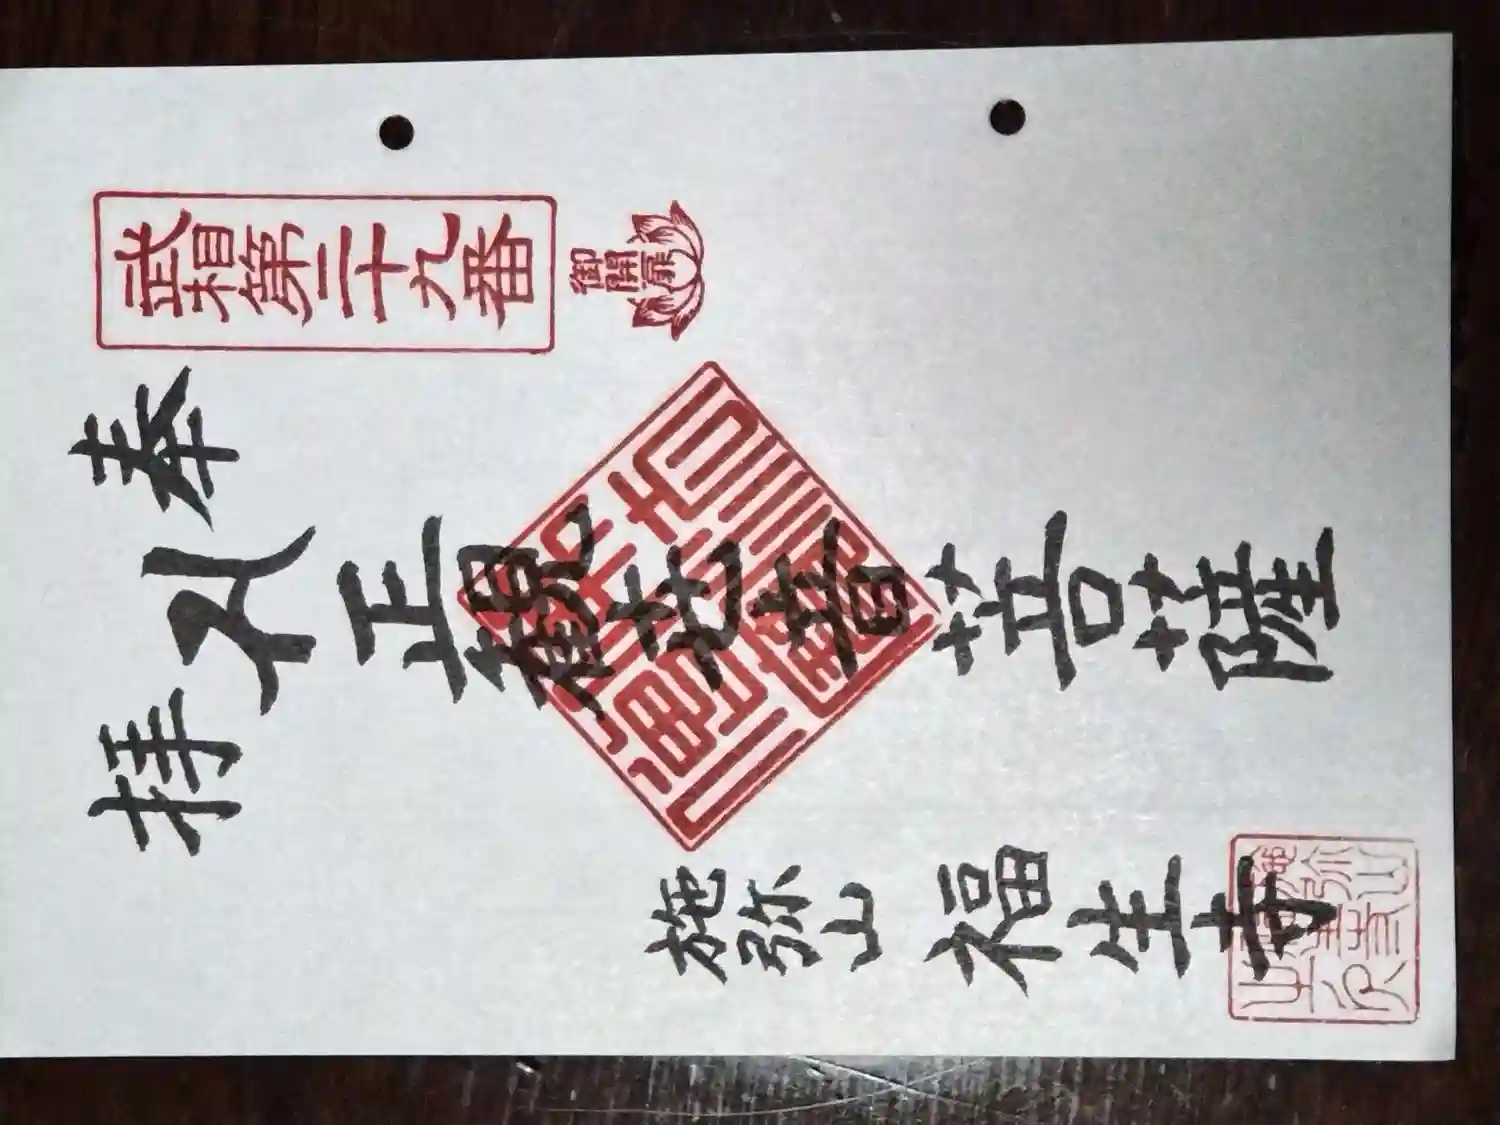 武相第二十九番
御開扉
奉拝
正観世音菩薩
施弥山 福生寺